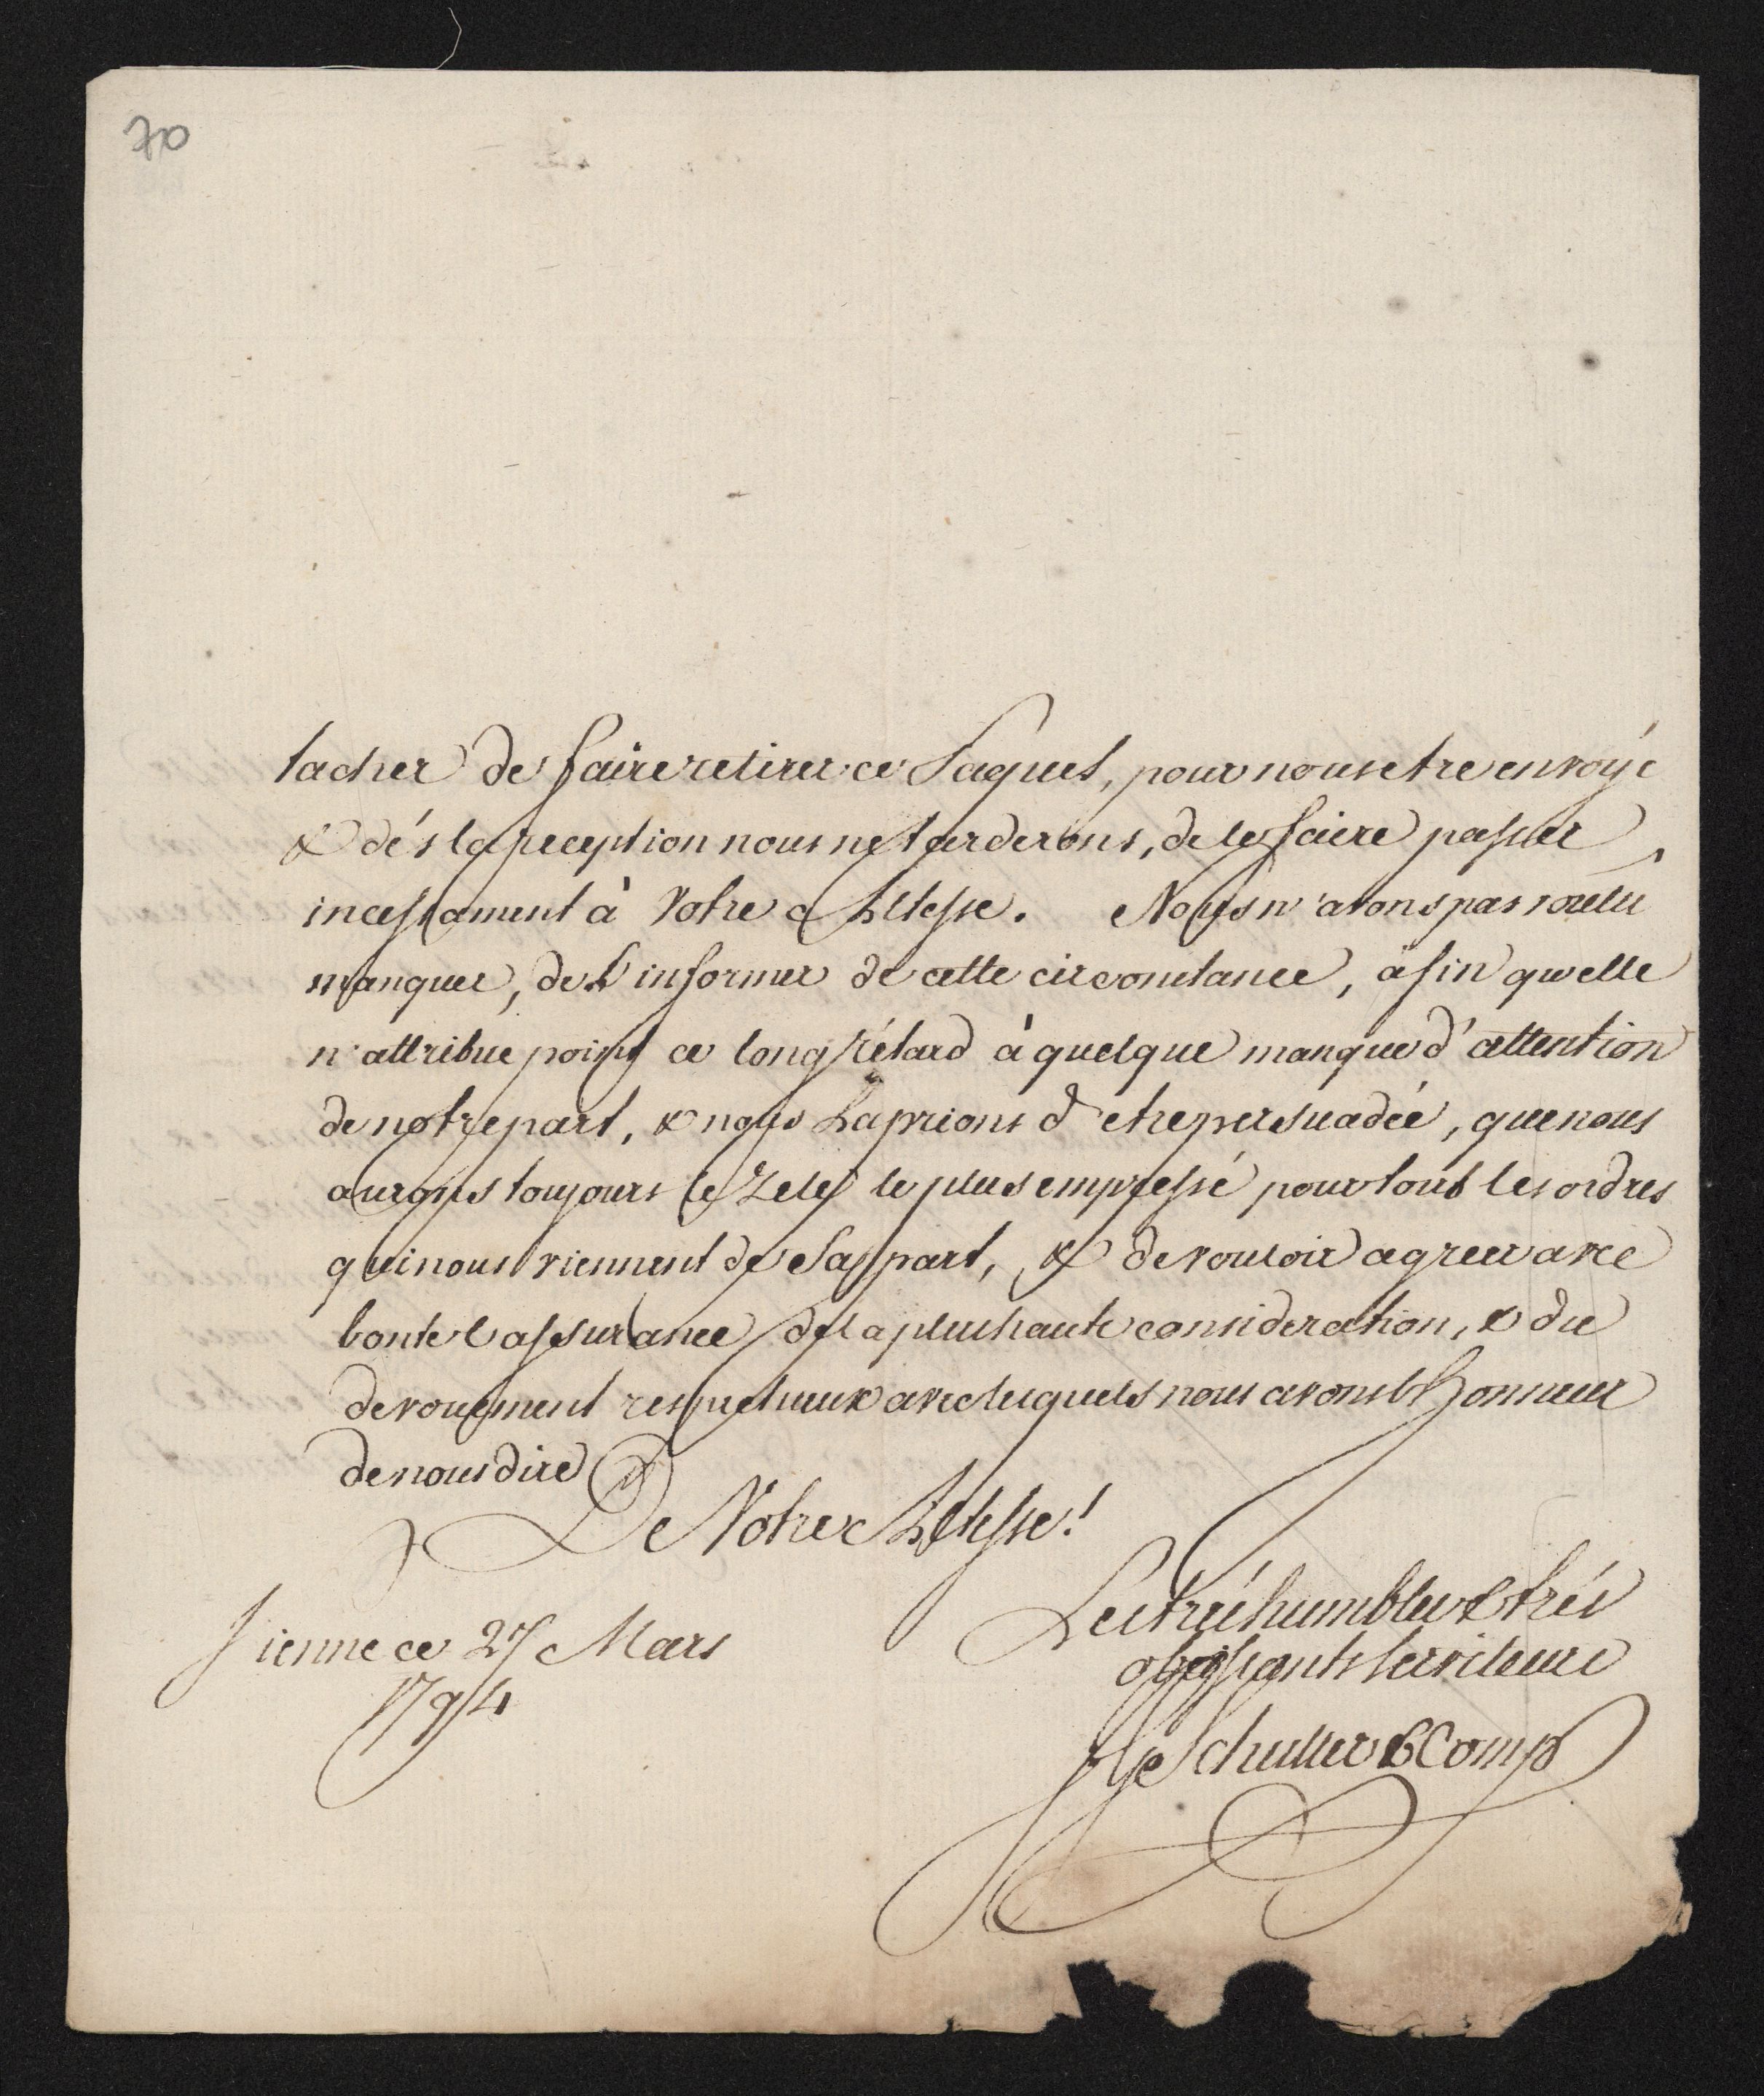 70
tacher de faire retirer ce Paquet, pour nous etre envoyé
& dés la reception nous ne tarderons, de le faire passer
incessament à Votre Altesse. Nous n'avons pas voulu
manquer, de L'informer de cette circonstance, àfin qu'elle
n'attribue point ce long rétard à quelque manque d'attention
de notre part, & nous La prions d'etre persuadée, que nous
aurons toujours le Zele le plus empressé pour tout les ordres
qui nous viennent de Sa part, & de vouloir agreer avec
bonté l'assurance de la plus haute consideration, & du
devouement respectueux avec lesquels nous avons l'honneur
de nous dire
De Votre Altesse!
Les trés humbles & trés
obeissants serviteurs
Schuller & Comp
Vienne ce 27 Mars
1794